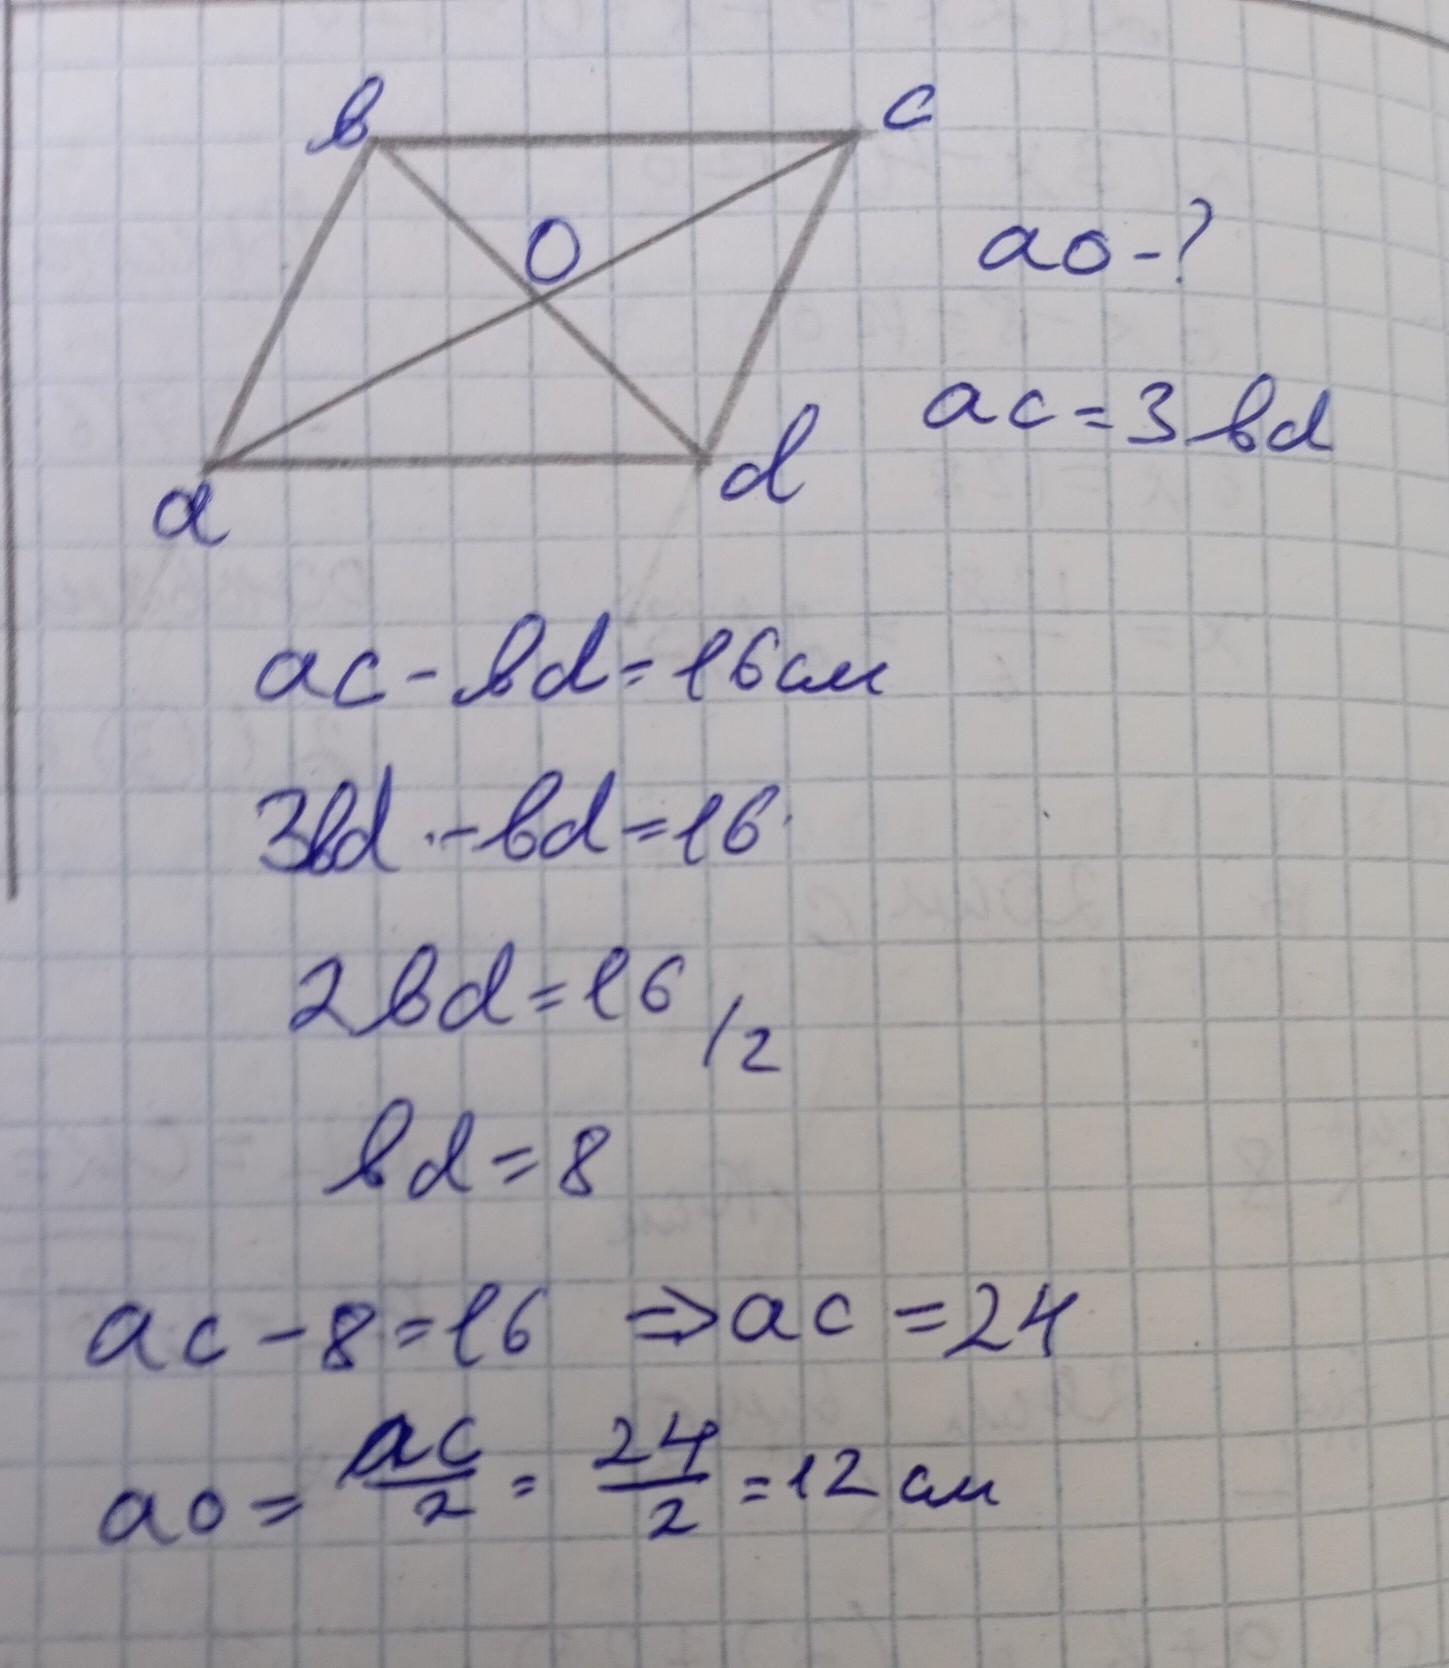 в c
O
ao-?
ac=3вd
a d
ac-вd=16см
3вd-вd=16
2вd=16 /2
вd=8
ac-8=16 ⇒ac=24
ao=ac/2=24/2=12 см